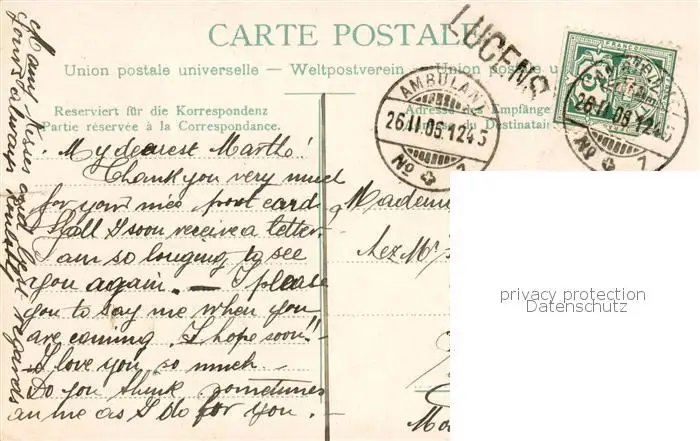 CARTE POSTALE
Union postale universelle – Weltpostverein – Union postale u
LUCENS
FRANCO
5
AMBULANT
26.II.06.12
No 1
AMBULANT
26.II.06.12
No 1
Reserviert für die Korrespondenz
Partie réservée à la Correspondance.
Adresse des Empfänge
du Destinatair
My dearest Martho!
Thank you very much
for your nice post card.
Shall I soon receive a letter.
I am so longing to see
you again. — I please
you to say me when you
are coming. I hope soon!!
I love you so much.
Do you think sometimes
an me as I do for you. –
Many kisses and best regards
Yours always
Madem
chez Mr
privacy protection
Datenschutz